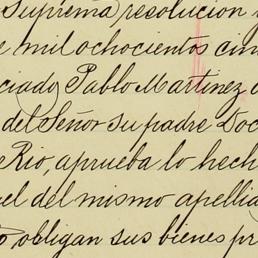 Suprema resolucion
mil ochocientos cin
ciado Pablo Martinez
del Señor su padre Doc
Rio, aprueba lo hech
el del mismo apellia
obligan sus bienes pr